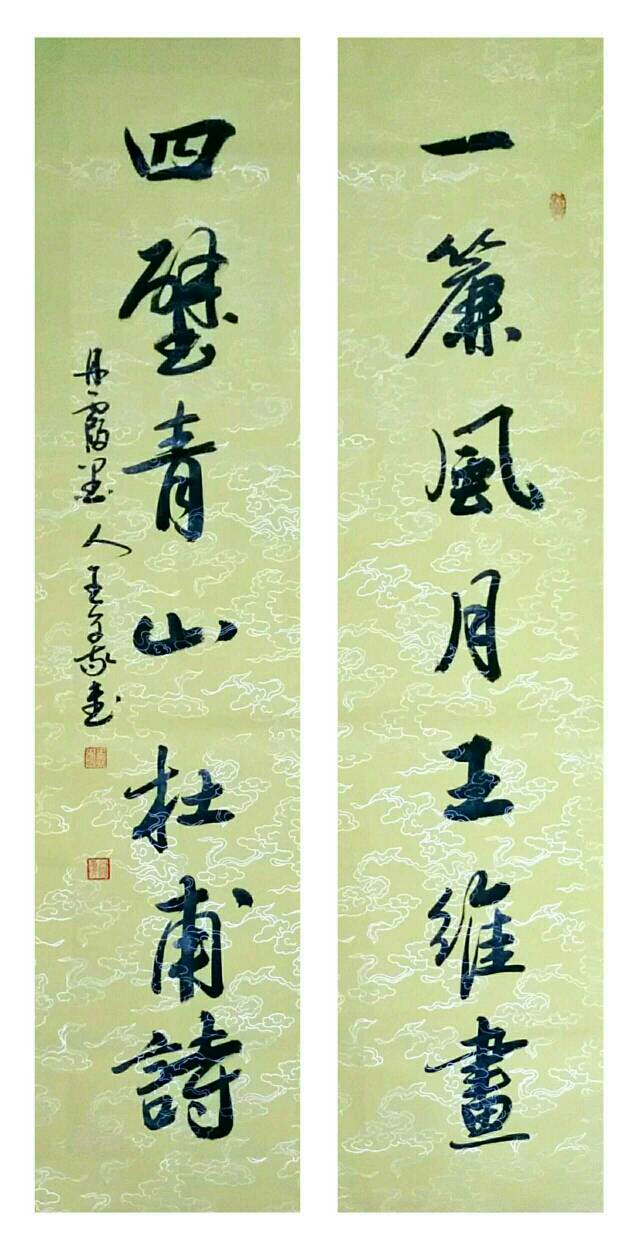 一簾風月王維畫
四壁青山杜甫詩
丹霞墨人王子家書